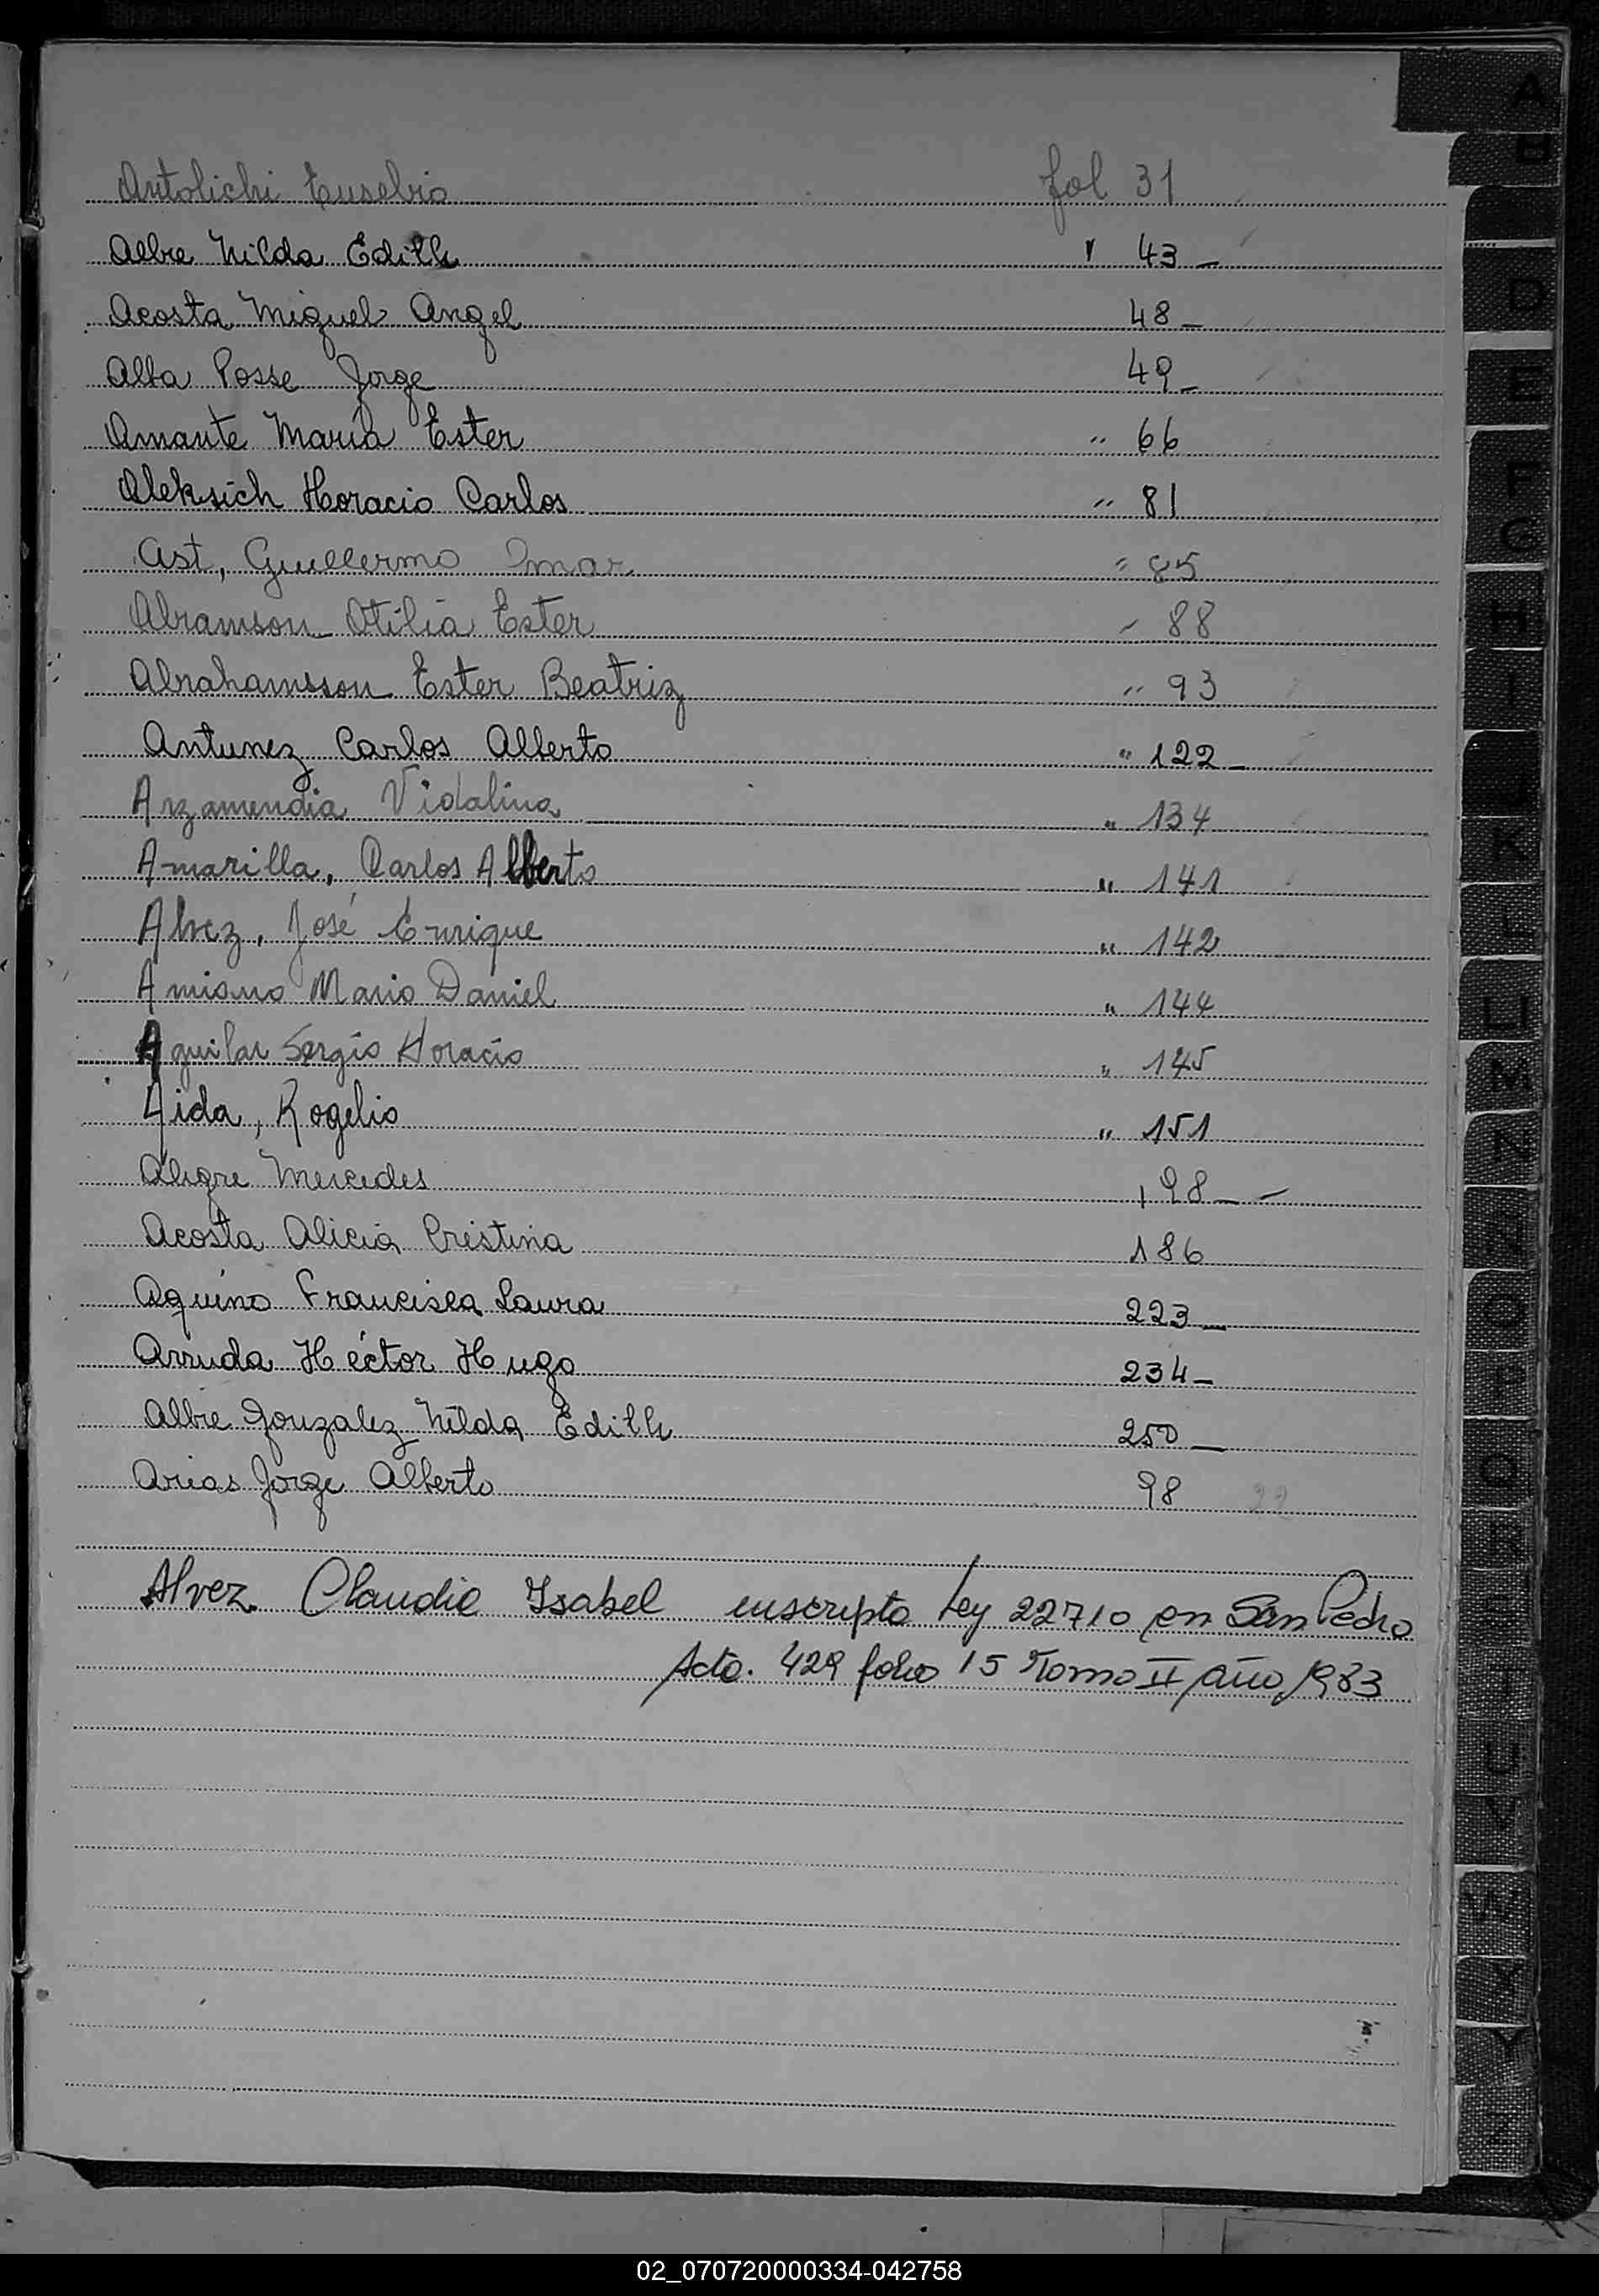 Antolichi Eusebio fol 31
Albre Nilda Edith " 43 _
Acosta Miguel Angel 48 _
Alba Posse Jorge 49 _
Amante María Ester " 66
Aleksich Horacio Carlos " 81
Ast, Guillermo Omar " 85
Abramson Otilia Ester " 88
Abrahamsson Ester Beatriz " 93
Antunez Carlos Alberto " 122 _
Arzamendia Vidalina " 134
Amarilla, Carlos Alberto " 141
Alvez, José Enrique " 142
Amiano Mario Daniel " 144
Aguilar Sergio Horacio " 145
Aida, Rogelio " 151
Alegre Mercedes 198 _
Acosta Alicia Cristina 186
Aquino Francisca Laura 223 _
Arruda Héctor Hugo 234 _
Albre Gonzalez Nilda Edith 250 _
Arias Jorge Alberto 98 22
Alvez Claudia Isabel inscripta Ley 22710 en San Pedro
Acta. 429 folio 15 Tomo II año 1983
A
B
D
E
F
G
H
I
J
K
L
Ll
M
N
Ñ
O
P
Q
R
S
T
U
V
W
X
Y
Z
02_070720000334-042758